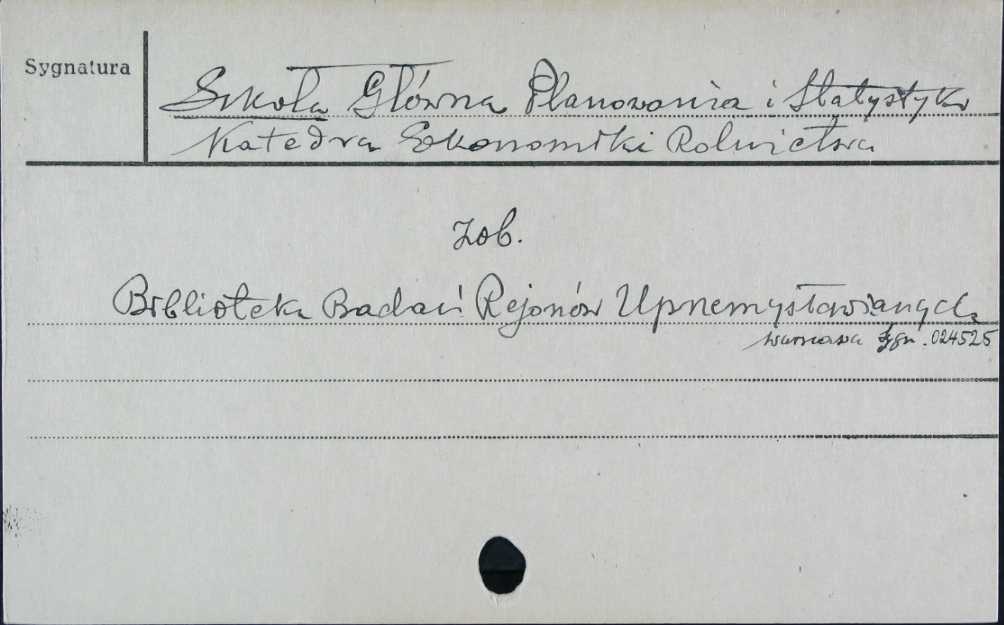 Sygnatura
Szkoła Główna Planowania i Statystyki
Katedra Ekonomiki Rolnictwa
zob.
Biblioteka Badań Rejonów Uprzemysławianych
Warszawa Sygn. 024525